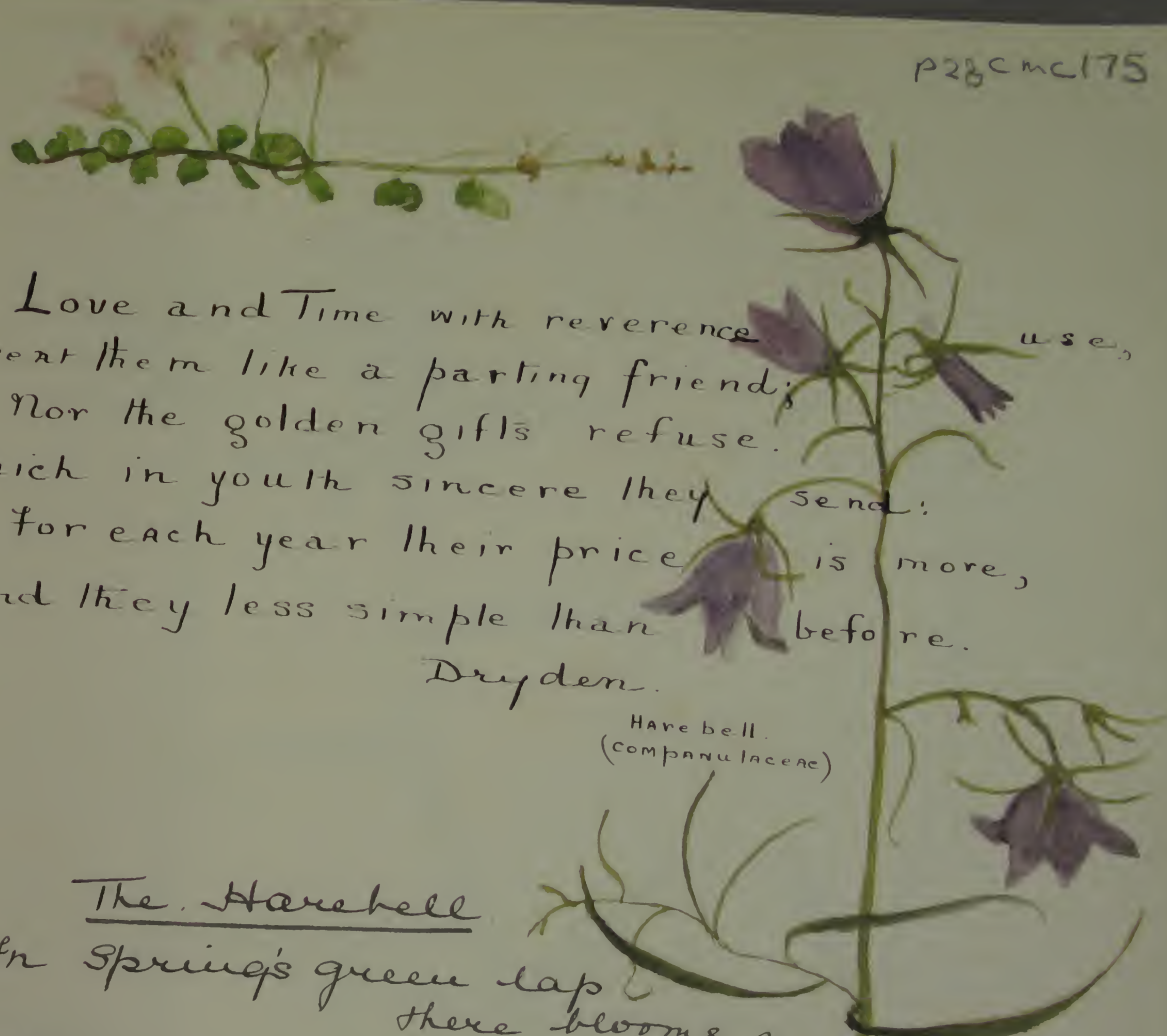 p28cmc175
Love and Time with reverence use,
them like a parting friend;
Nor the golden gifts refuse.
in youth sincere they send:
For each year their price is more,
they less simple than before.
Dryden.
Harebell.
(companulaceae)
The Harebell
Spring's green lap
there blooms